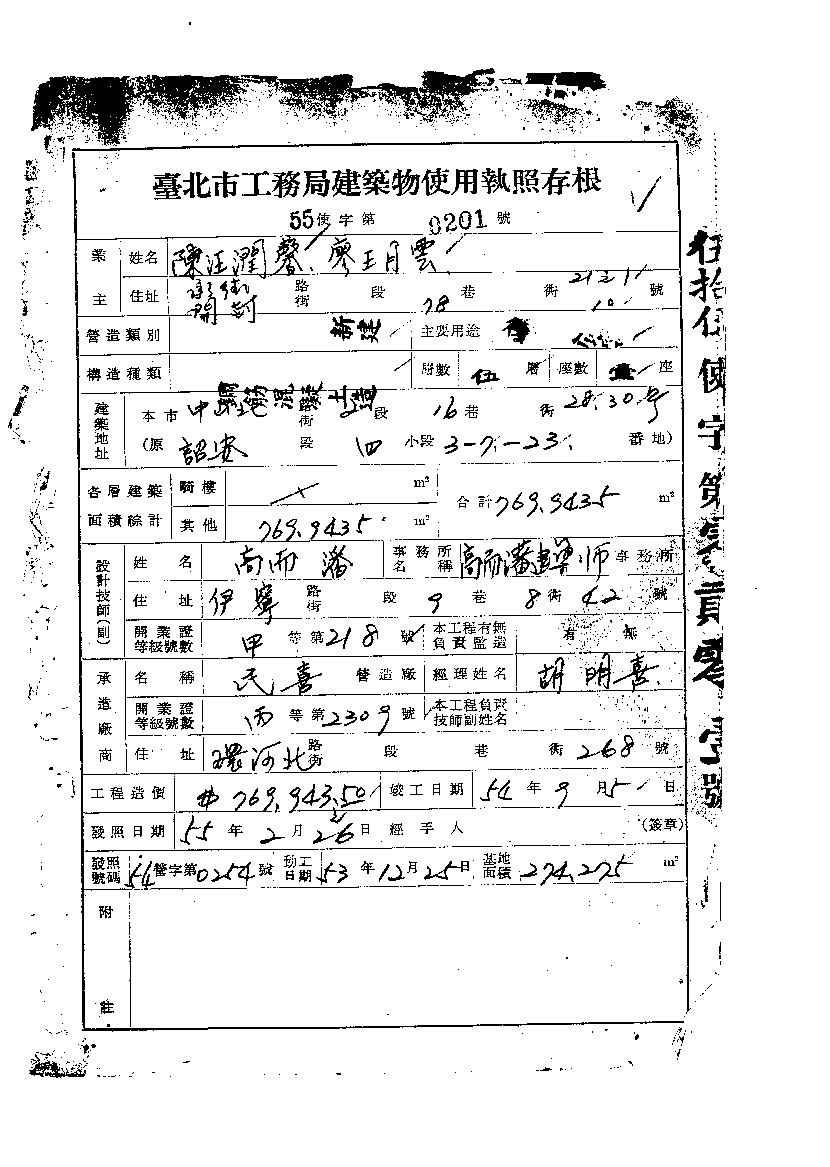 臺北市工務局建築物使用執照存根
55使字第 0201 號
業主 姓名 陳汪潤馨、廖王月雲
住址 開封 路街 段 78巷 街 號
營造類別 新建 主要用途
構造種類 鋼筋混凝土造 層數 伍層 座數 壹座
建築地址 本市中 路街 段 16巷 街 28.30號
(原 詔安 段 四 小段 3-7-23 番地)
各層建築面積綜計 騎樓 m² 合計 769.9435 m²
其他 769.9435 m²
設計技師(副) 姓名 高而潘 事務所名稱 高而潘建築師事務所
住址 伊寧 路街 段 9巷 8街 42號
開業證等級號數 甲等第218號 本工程有無負責監造 有 無
承造廠商 名稱 民喜 營造廠 經理姓名 胡明喜
開業證等級號數 丙等第2309號 本工程負責技師副姓名
住址 環河北 路街 段 巷 街 268號
工程造價 #769,943.50 竣工日期 54年9月5日
發照日期 55年2月26日 經手人 (簽章)
發照號碼 54營字第0254號 動工日期 53年12月25日 基地面積 274.275 m²
附註
伍拾伍使字第零貳零壹號